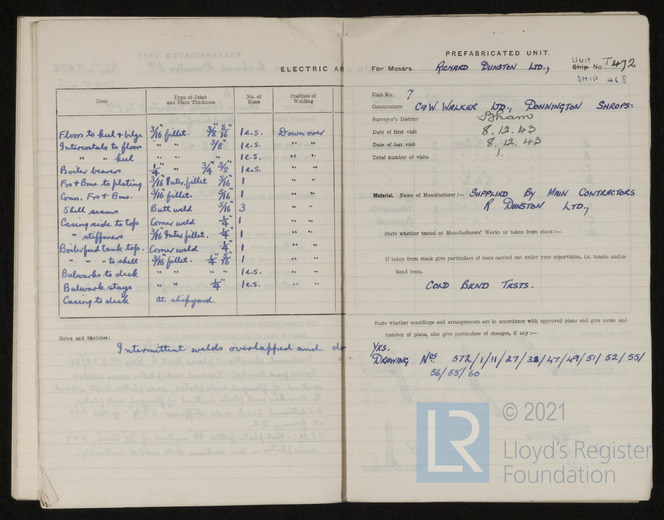 ELECTRIC AR
Date
Type of Joint and Plate Thickness
No. of Runs
Position of Welding
Floors to keel & bilge 3/16 fillet. 3/8 5/16 1 e.s. Down over
Intercostals to floors " " 3/8" 1 e.s. " "
" " keel " " 1 e.s. " "
Boiler bearers 1/4" " 3/4 3/8 1 e.s. " "
Frs & Bms. to plating 3/16 Inter. fillet 5/16 1 " "
Conn. Frs & Bms. 3/16 fillet. 5/16 1 " "
Shell seams Butt weld 5/16 3 " "
Casing side to top Corner weld 1/4 1 " "
" stiffeners 3/16 Inter. fillet 1/4 1 " "
Boilerfeed tank top. Corner weld 1/4 1 " "
" " " to shell 3/16 fillet. 1/4 5/16 1 " "
Bulwarks to deck " " " " 1 e.s. " "
Bulwark stays " " 1/4" 1 e.s. " "
Casing to deck at shipyard.
Notes and Sketches:
Intermittent welds overlapped and do
PREFABRICATED UNIT.
For Messrs. RICHARD DUNSTON LTD., UNIT Ship No T472
SHIP 468
Unit No. 7
Constructors C & W. WALKER LTD., DONNINGTON SHROPS:
Surveyor's District B'ham
Date of first visit 8.12.43
Date of last visit 8.12.43
Total number of visits 1.
Material. Name of Manufacturer:— SUPPLIED BY MAIN CONTRACTORS
R DUNSTON LTD.,
State whether tested at Manufacturers' Works or taken from stock:—
If taken from stock give particulars of tests carried out under your supervision, i.e. tensile and/or
bend tests.
COLD BEND TESTS.
State whether scantlings and arrangements are in accordance with approved plans and give name and
number of plans, also give particulars of changes, if any:—
YES.
DRAWING Nos 572/1/11/27/32/47/49/51/52/53/
56/55/60
© 2021
LR
Lloyd's Register
Foundation